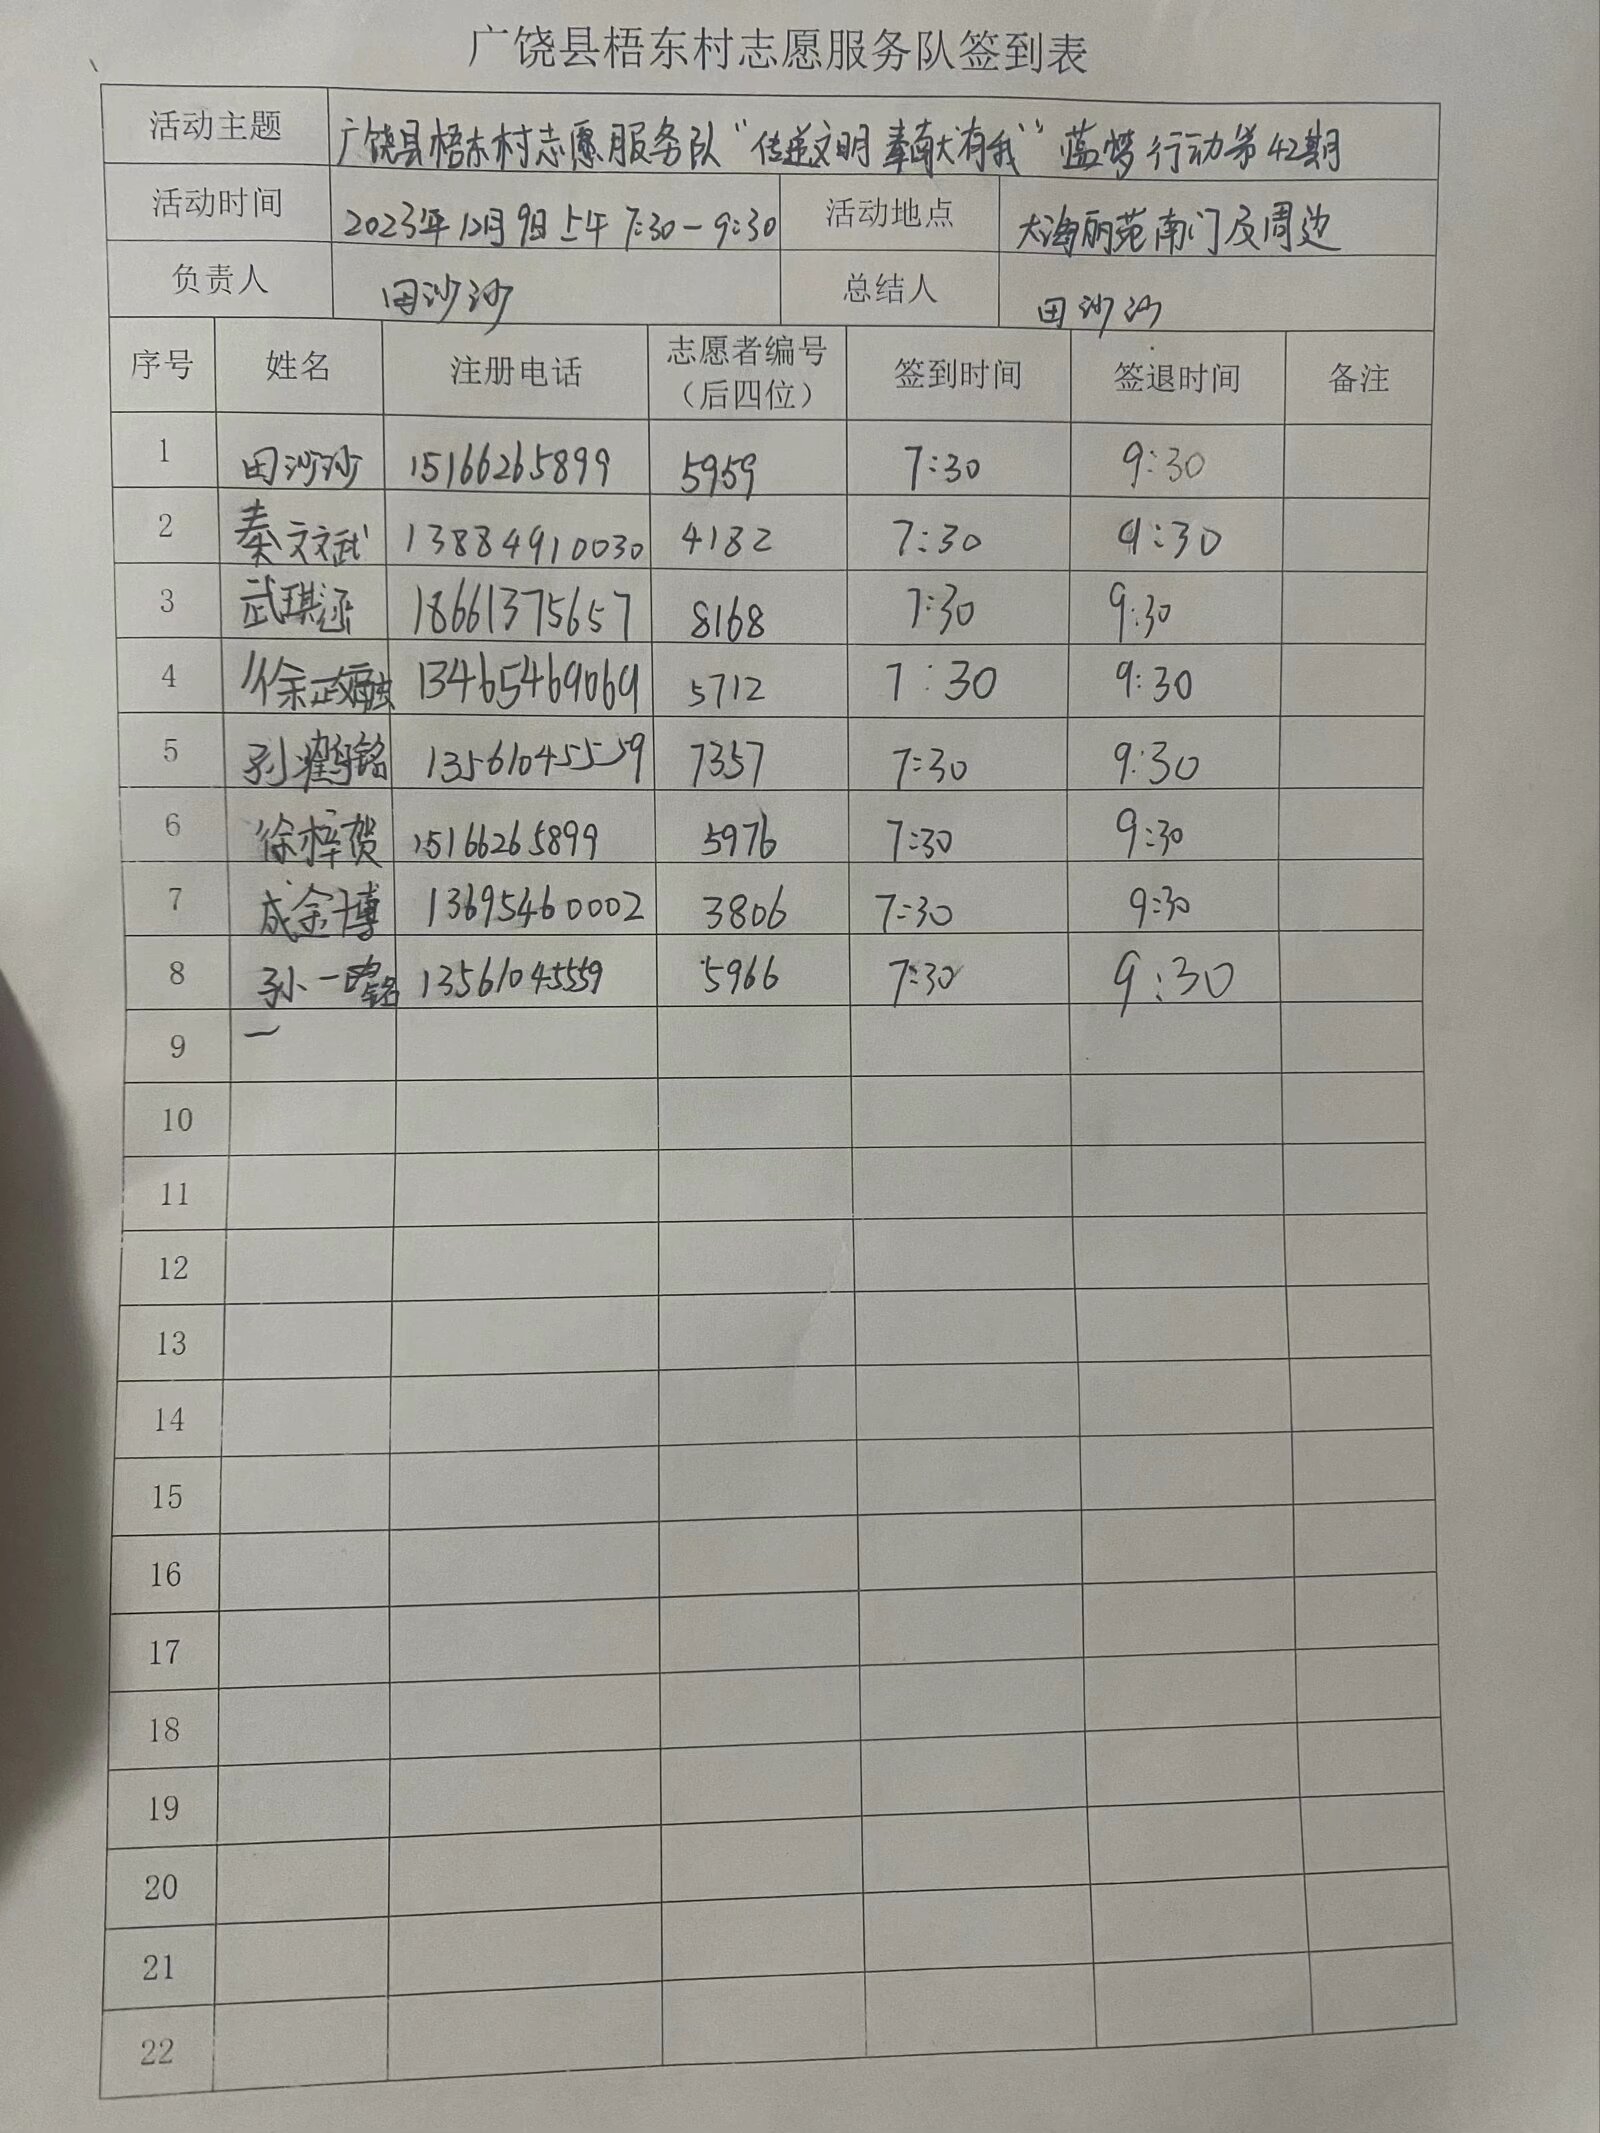 广饶县梧东村志愿服务队签到表
活动主题 广饶县梧东村志愿服务队“传递文明 奉献有我”蓝梦行动第42期
活动时间 2023年12月9日上午 7:30-9:30 活动地点 大海丽苑南门及周边
负责人 田沙沙 总结人 田沙沙
序号 姓名 注册电话 志愿者编号（后四位） 签到时间 签退时间 备注
1 田沙沙 15166265899 5959 7:30 9:30
2 秦文武 13884910030 4182 7:30 9:30
3 武琪 18661375657 8168 7:30 9:30
4 徐政融 13465469069 5712 7:30 9:30
5 孙鹤铭 13561045559 7357 7:30 9:30
6 徐梓贺 15166265899 5976 7:30 9:30
7 成金博 13695460002 3806 7:30 9:30
8 孙一铭 13561045559 5966 7:30 9:30
9
10
11
12
13
14
15
16
17
18
19
20
21
22